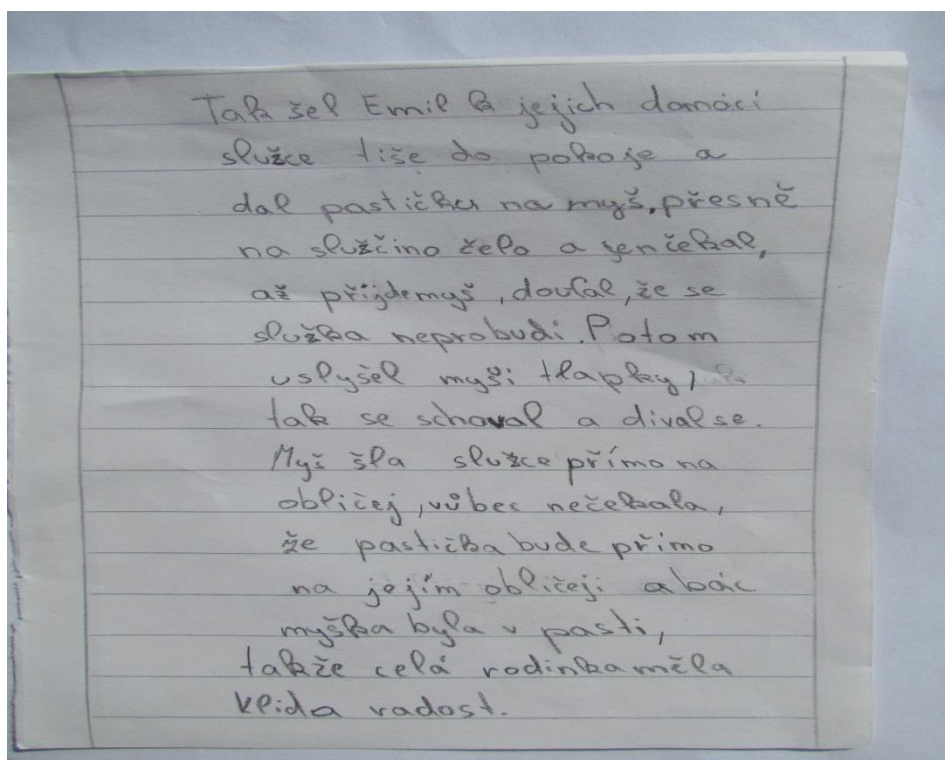 Tak šel Emil k jejich domácí
služce tiše do pokoje a
dal pastičku na myš, přesně
na služčino čelo a jen čekal,
až příjde myš, doufal, že se
služka neprobudí. Potom
uslyšel myší tlapky,
tak se schoval a díval se.
Myš šla služce přímo na
obličej, vůbec nečekala,
že pastička bude přímo
na jejím obličeji a bác
myška byla v pasti,
takže celá rodinka měla
klid a radost.